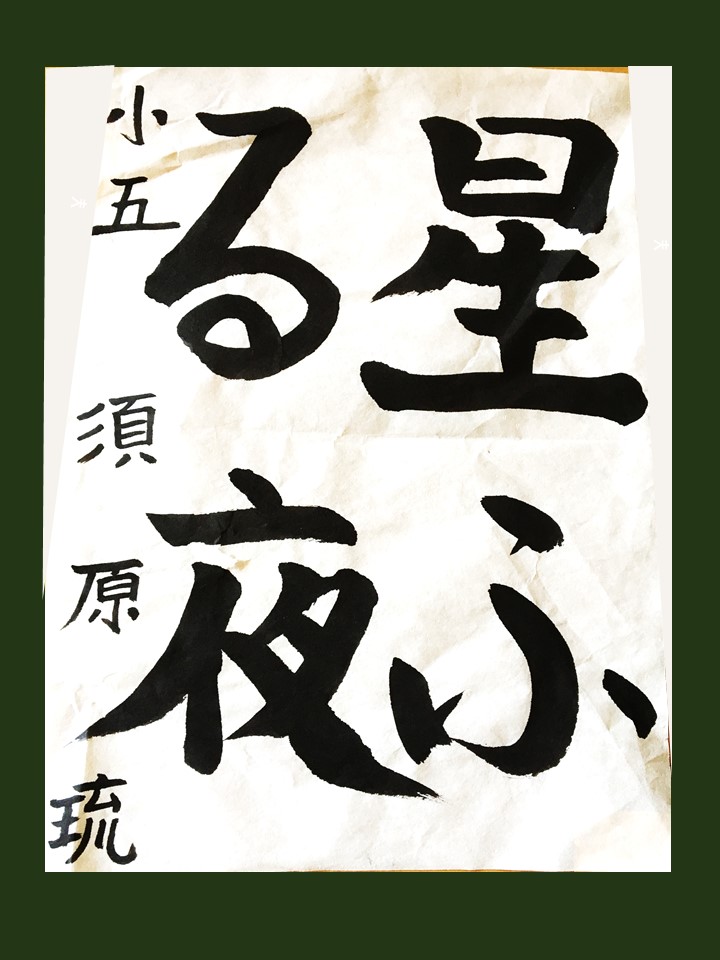 星ふ
る夜
小五 須原 琉